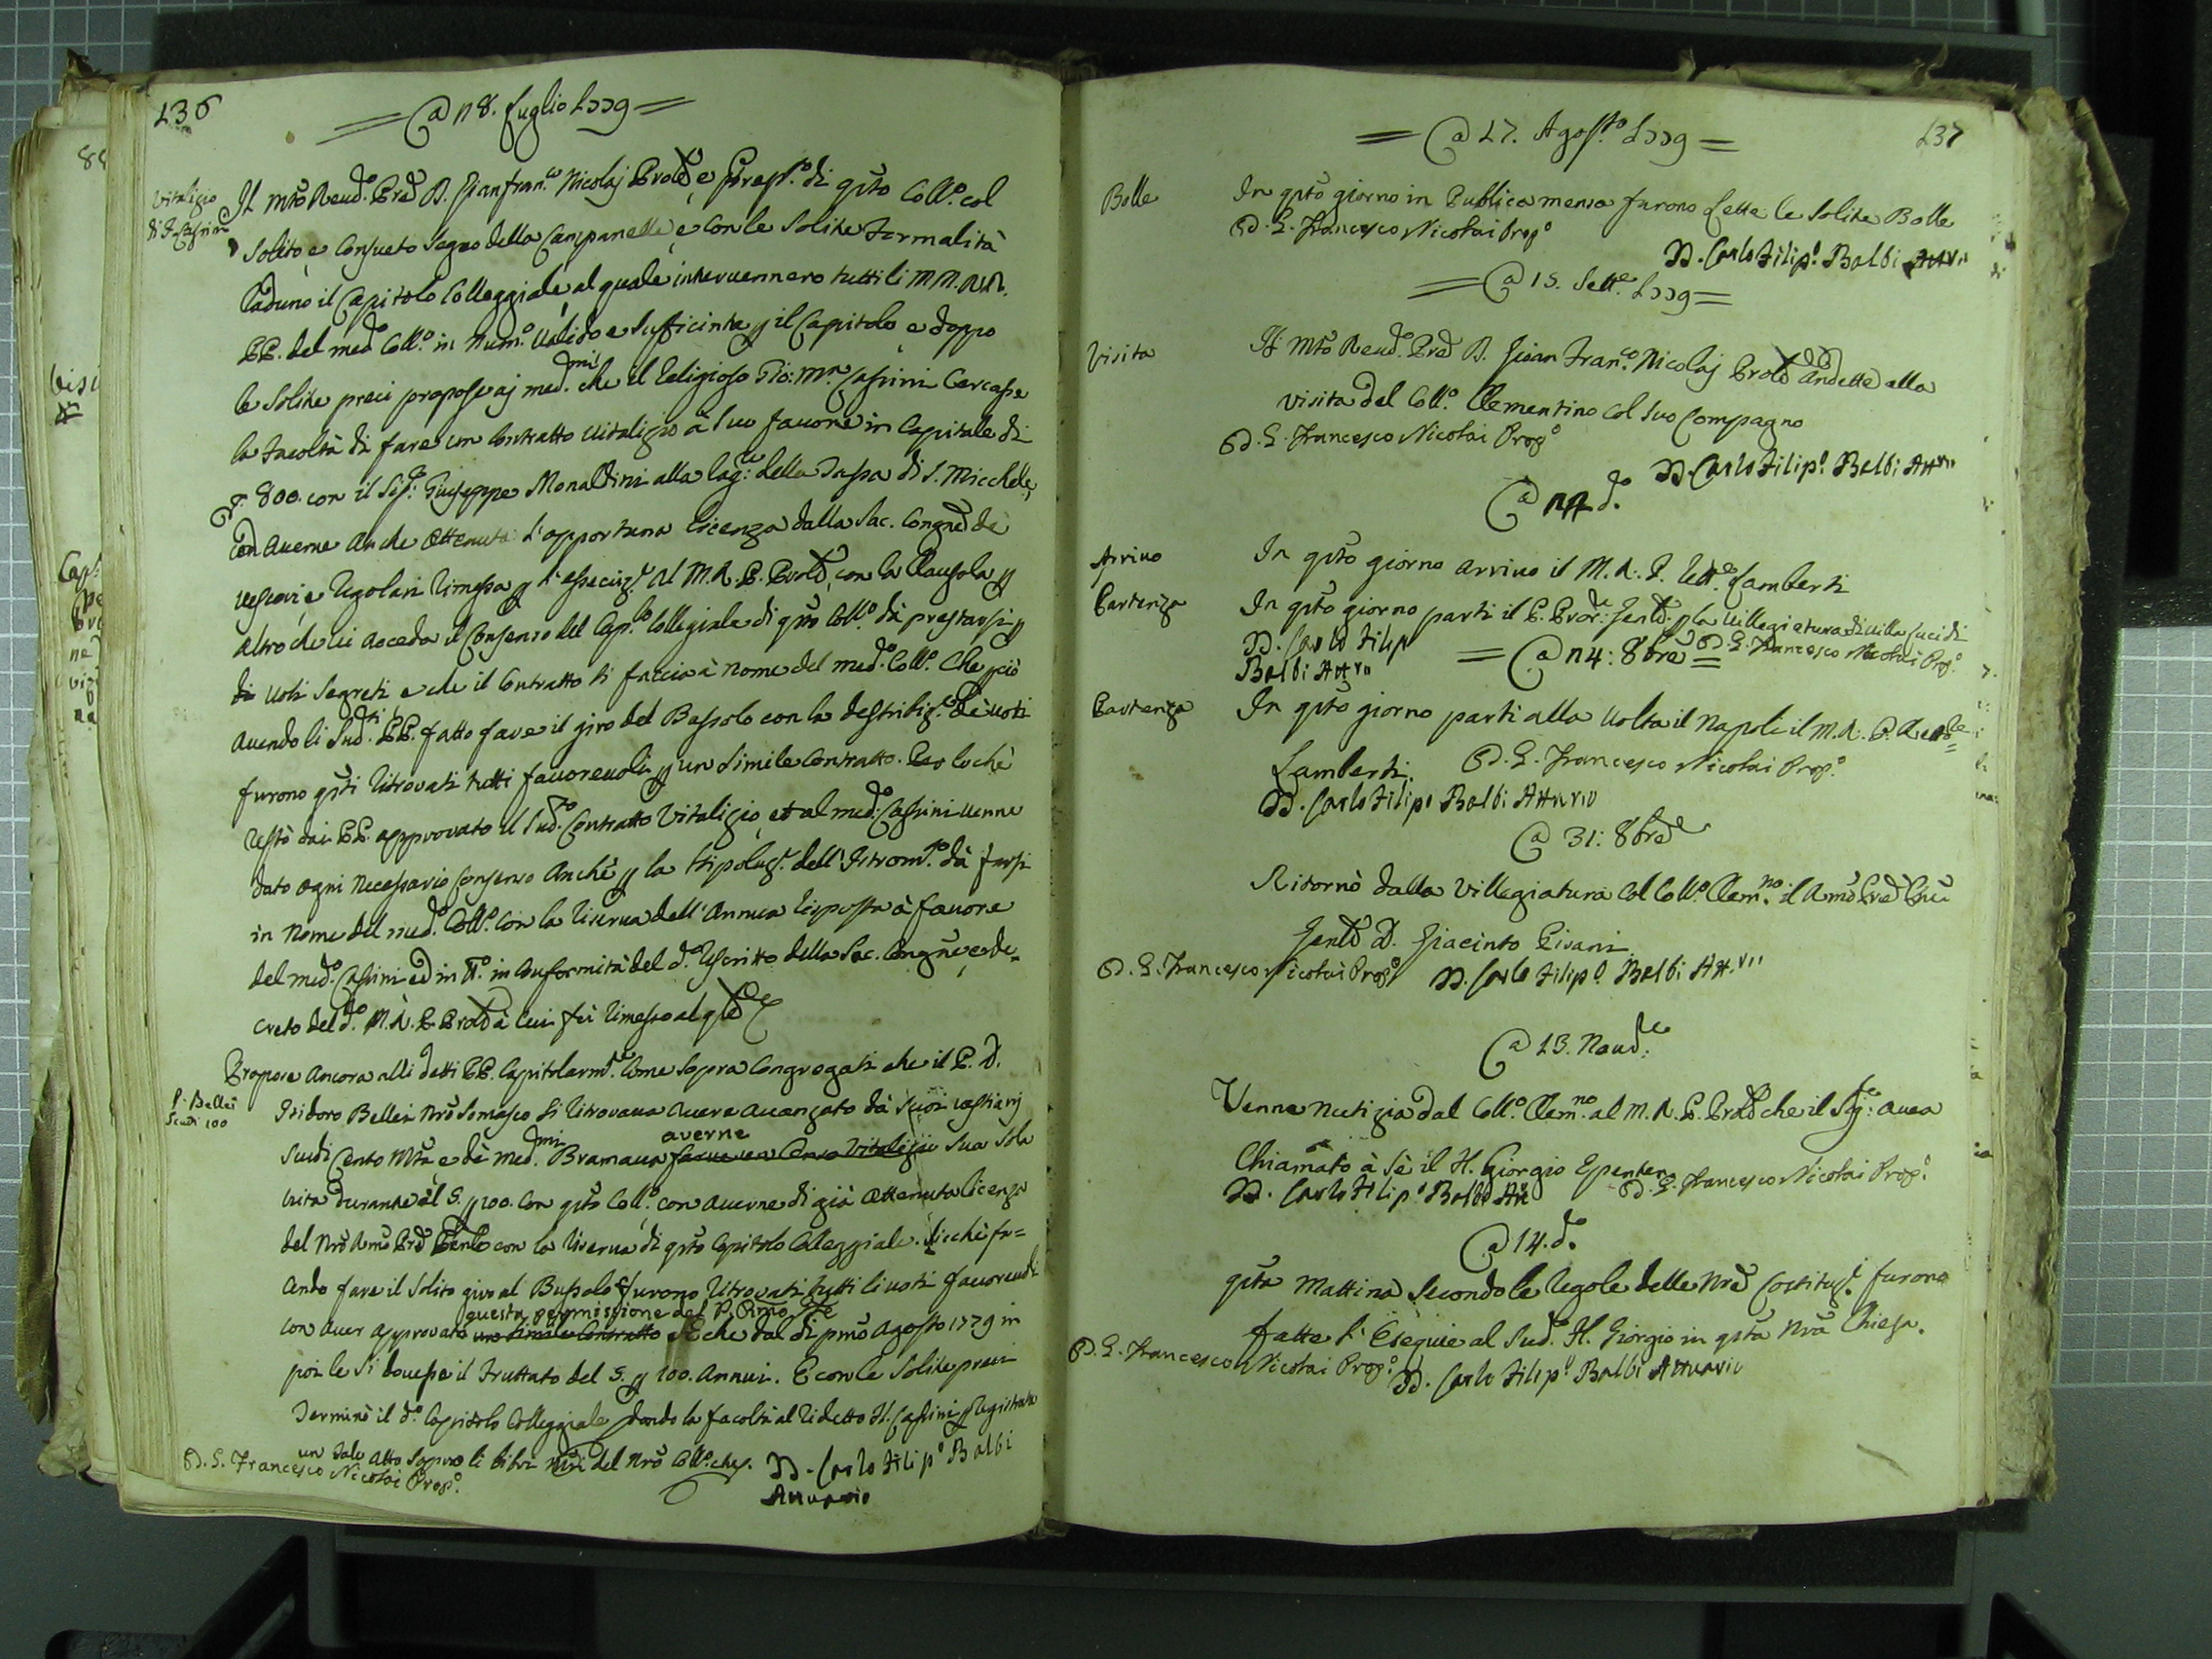 136
= @ 28. Luglio 1779 =
Vitalizio
di F. Cassini
Il mto Reud.o Pred D. Gianfran.co Nicolaj Prole e Prep.to di qsto Coll.o col
Solito e Consueto Segno della Campanella e con le Solite Formalità
Radunò il Capitolo Colleggiale al quale intervennero tutti li M.M. R.R.
PP. del med.o Coll.o in Num.o Valido e Sufficinte p il Capitolo e doppo
le Solite preci propose aj med.mi che il Religioso Gio: Mra Cassini Cercasse
la Facoltà di fare un Contratto Vitalizio à Suo favore in Capitale di
800. con il Sig.r Giuseppe Monaldini alla rag.ne della Tassa di S. Micchele,
ed averne anche ottenuta l'opportuna licenza dalla Sac. Congne de
Vescovi e Regolari Rimessa p l'essecuz.e al M.R.P. Prole, con la Clausola p
altro che vi acceda il Consenso del Cap.lo Collegiale di qsto Coll.o dà prestarsi p
di Voti Segreti e che il Contratto si faccia à nome del med.o Coll.o Che pciò
avendo li Sud.ti PP. fatto fare il giro del Bossolo con la destribuz.e de voti
furono qsti ritrovati tutti favorevoli p un Simile Contratto. Per lo chè
restò dai PP. approvato il Sud.o Contratto Vitalizio, et al med.o Cassini venne
dato ogni Necessario Consenso Anche p la Stipolaz.e dell'Istrom.to dà farsi
in Nome del med.o Coll.o con la riserva dell'Annua risposta à favore
del med.o Cassini ed in tt.o in Conformità del d.o rescritto della Sac. Congne, e de-
creto del d.o M.R.P. Prole à cui fù rimesso
P. Bellei
Scudi 100
Propose Ancora alli detti PP. Capitolarm.te Come Sopra Congregati che il P. D.
Isidoro Bellei Nro Somasco si ritrovava avere avanzato dà Suoi vestiarij
Scudi Cento Mta e dà med.mi Bramava averne Sua Sola
vita durante il 5. p 100. con qsto Coll.o con averne di già ottenuta licenza
del Nro Rmo Pre Genle con la riserva di qsto Capitolo Colleggiale. Sicchè fa=
cendo fare il Solito giro al Bussolo furono ritrovati tutti li voti favorevoli
questa permissione del P. Rmo
con aver approvato un simile Contratto E che dal di pmo Agosto 1779 in
poi le Si dovesse il Fruttato del 5. p 100. Annui. E con le Solite preci
Terminò il d.o Capitolo Colleggiale, dando la facoltà al ridetto F. Cassini p registrare
un tale atto Sopra li libri del Nro Coll.o
D. G. Francesco Nicolai Prop.o
D. Carlo Filip.o Balbi
Attuario
137
= @ 17. Agosto 1779 =
Bolle
In qsto giorno in Publica mensa furono Lette le Solite Bolle
D. G. Francesco Nicolai Prop.o
D. Carlo Filip.o Balbi Att.rio
= @ 15. Sett.e 1779 =
Visita
Il Mto Reud.o Pred D. Gian Fran.co Nicolaj Prole andette alla
visita del Coll.o Clementino col Suo Compagno
D. G. Francesco Nicolai Prop.o
D. Carlo Filip.o Balbi Att.rio
@ 22 d.o
Arrivo
In qsto giorno arrivo il M. R. P. Rett.e Lamberti
Partenza
In qsto giorno parti il P. Pror.e Genle p la villegiatura di villa Lucidi
D. Carlo Filip
Balbi Att.rio
D. G. Francesco Nicolai Prop.o
= @ 24: 8bre =
Partenza
In qsto giorno parti alla Volta il Napoli il M. R. P. Rettore
Lamberti.
D. G. Francesco Nicolai Prop.o
D. Carlo Filip.o Balbi Attuario
@ 31: 8bre
Ritornò dalla Villegiatura Col Coll.o Clem.no il Rmo Pre Proc
Genle D. Giacinto Pisani
D. G. Francesco Nicolai Prop.o
D. Carlo Filip.o Balbi Att.rio
@ 13. Nov.e
Venne Notizia dal Coll.o Clem.no al M. R. P. Prole che il Sig.e avea
Chiamato à Sè il F. Giorgio
D. Carlo Filip.o Balbi Att.
D. G. Francesco Nicolai Prop.o
@ 14. d.o
qsta Mattina Secondo le Regole delle Nre Costituz.i furono
fatte l'Esequie al Sud.o F. Giorgio in qsta Nra Chiesa.
D. G. Francesco Nicolai Prop.o
D. Carlo Filip.o Balbi Attuario